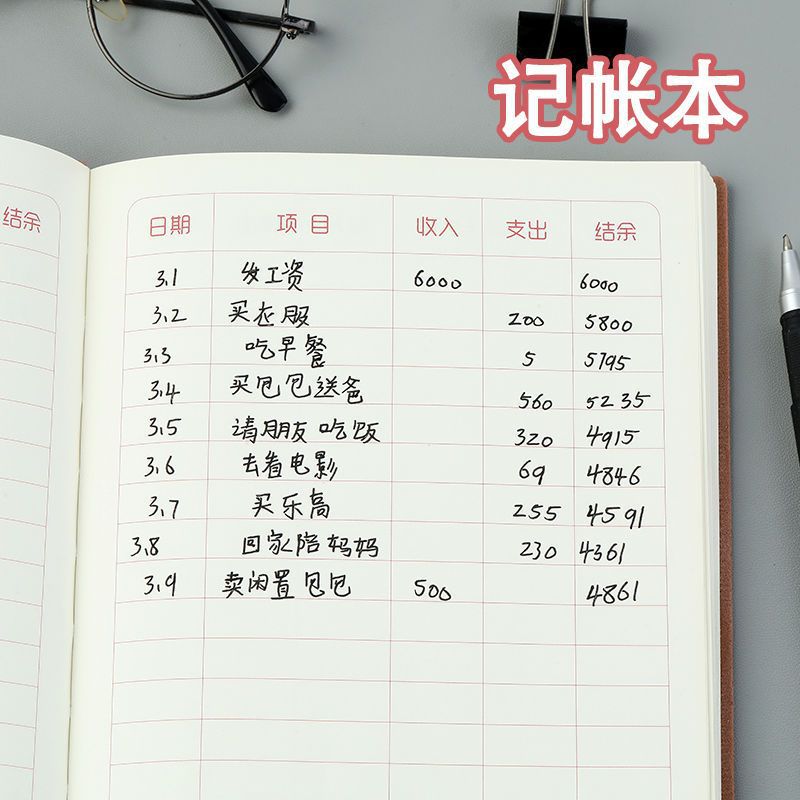 记帐本
结余
日期 项目 收入 支出 结余
3.1 发工资 6000 6000
3.2 买衣服 200 5800
3.3 吃早餐 5 5795
3.4 买包包送爸 560 5235
3.5 请朋友吃饭 320 4915
3.6 去看电影 69 4846
3.7 买乐高 255 4591
3.8 回家陪妈妈 230 4361
3.9 卖闲置包包 500 4861